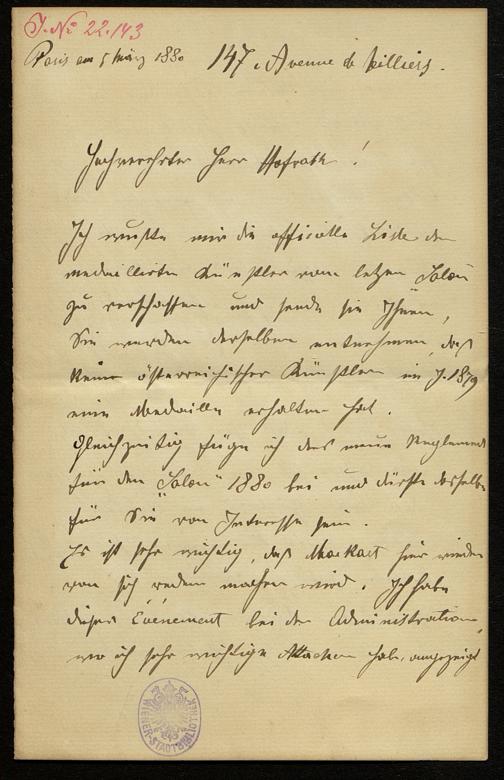 J. No 22.143
Paris am 5 März 1880 147. Avenue de Villiers.
Hochverehrter Herr Hofrath!
Ich wußte mir die officielle Liste der
medaillirten Künstler vom letzen Salon
zu verschaffen und sende sie Ihnen,
Sie werden derselben entnehmen, daß
keine österreichischer Künstler im J. 1879
eine Medaille erhalten hat.
Gleichzeitig füge ich das neue Reglement
für den "Salon" 1880 bei und dürfte dasselbe
für Sie von Interesse sein.
Es ist sehr wichtig, daß Makart hier wieder
von sich reden machen wird. Ich habe
dieses Évenement bei der Administration,
wo ich sehr wichtige habe, angezeigt
WIENER-STADTBIBLIOTHEK